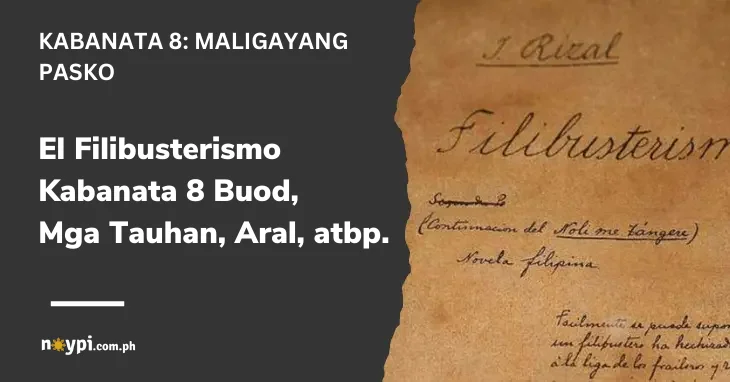 KABANATA 8: MALIGAYANG
PASKO
El Filibusterismo
Kabanata 8 Buod,
Mga Tauhan, Aral, atbp.
noypi.com.ph
J. Rizal
Filibusterism
(Continuacion del Noli me tángere)
Novela filipina
Facilmente se puede supon
un filibustero ha hechizad
á la liga de los fraileros y r